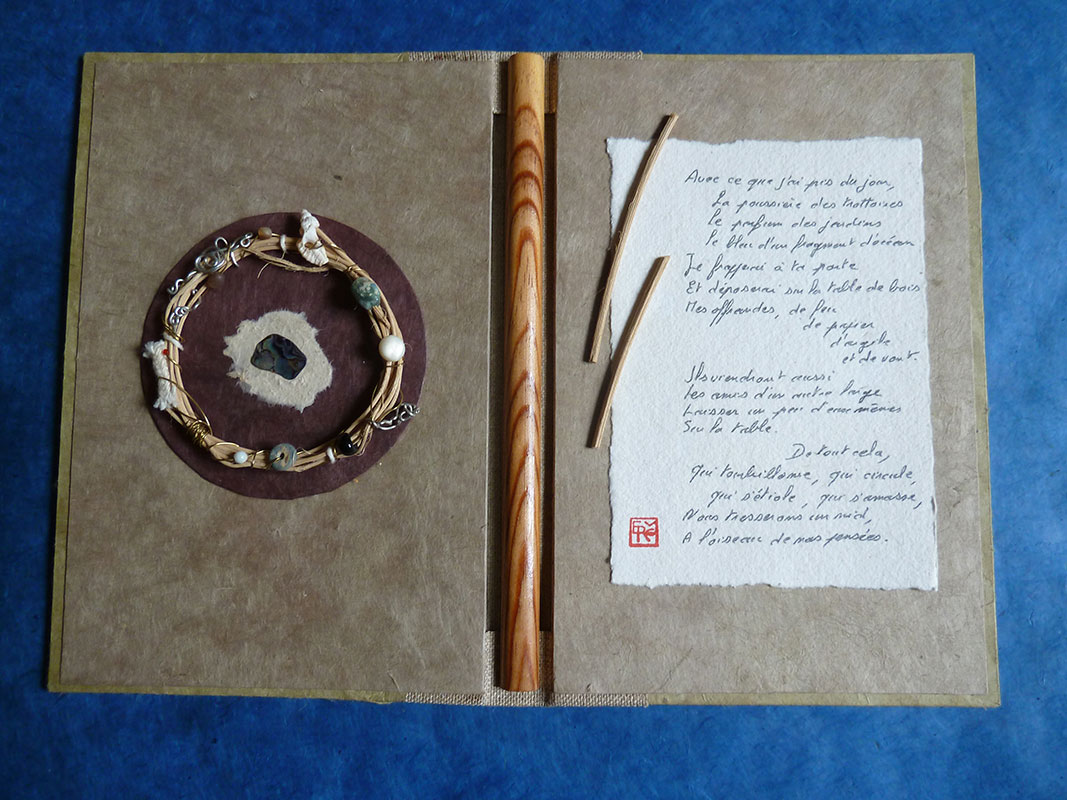 Avec ce que j'ai pris du jour,
La poussière des trottoirs
Le parfum des jardins
Le bleu d'un fragment d'océan
Je frapperai à ta porte
Et déposerai sur la table de bois
Mes offrandes, de feu
de papier
d'argile
et de vent.
Ils viendront aussi
Les amis d'un autre
Laisser un peu d'eux-mêmes
Sur la table.
De tout cela,
Qui tourbillonne, qui circule,
qui s'étiole, qui s'amasse,
Nous tresserons un nid,
A l'oiseau de nos pensées.